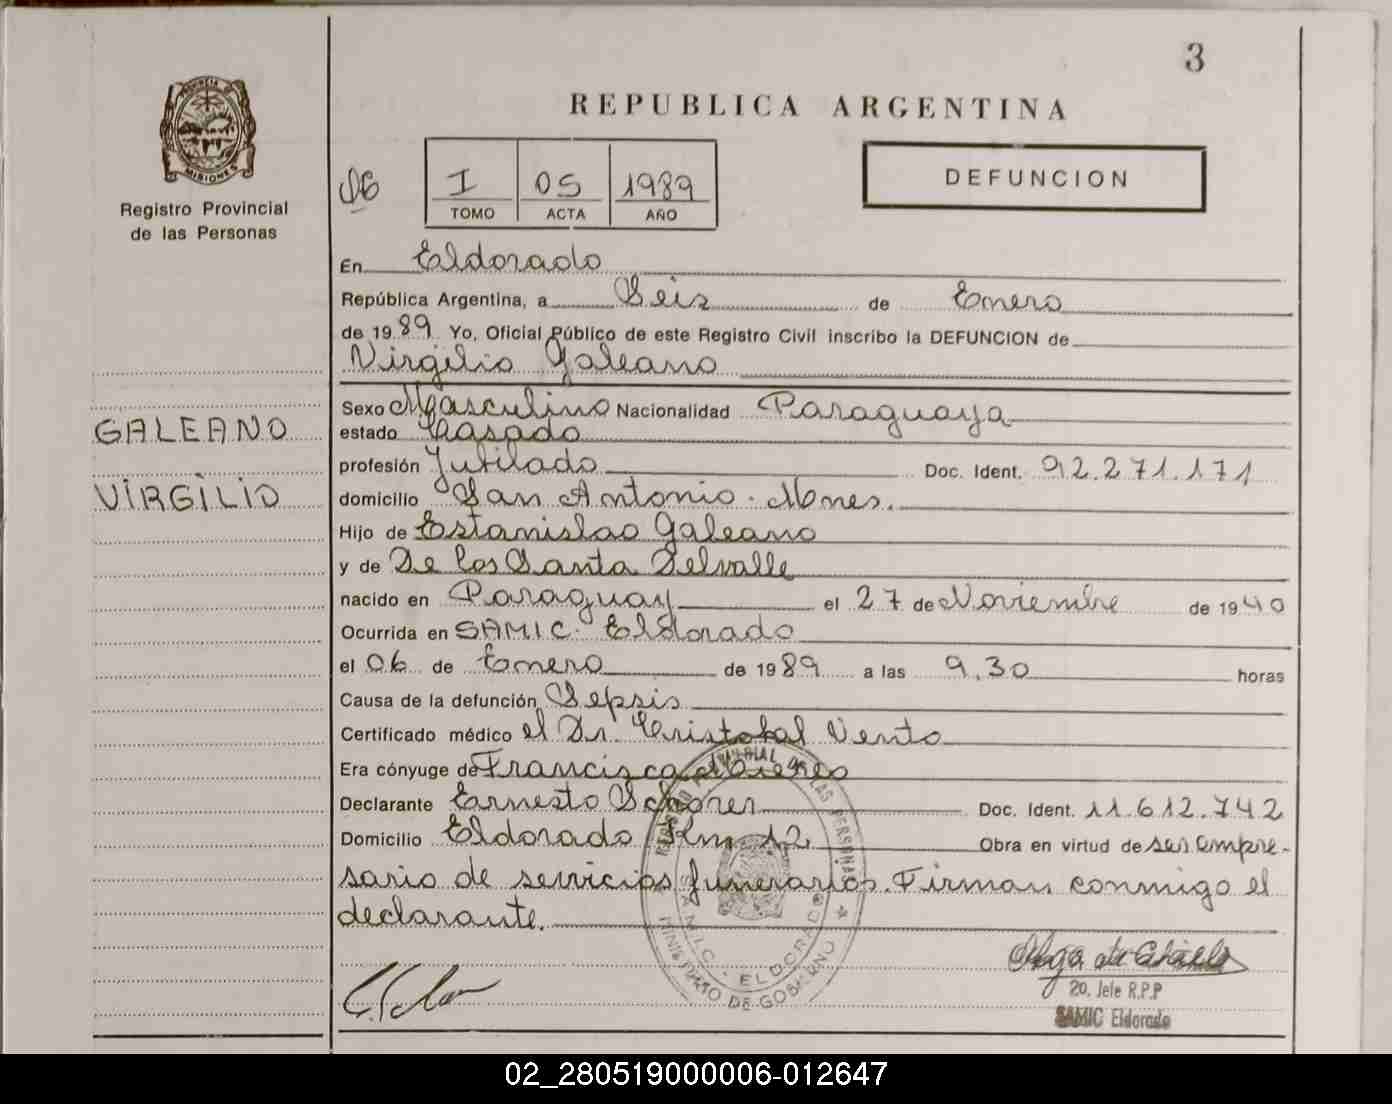 3
REPUBLICA ARGENTINA
PROVINCIA DE
MISIONES
Registro Provincial
de las Personas
I 05 1989
TOMO ACTA AÑO
DEFUNCION
En Eldorado
República Argentina, a Seis de Enero
de 1989 Yo, Oficial Público de este Registro Civil inscribo la DEFUNCION de
Virgilio Galeano
GALEANO
VIRGILIO
Sexo Masculino Nacionalidad Paraguaya
estado Casado
profesión Jubilado Doc. Ident. 92.271.171
domicilio San Antonio. Mnes.
Hijo de Estanislao Galeano
y de De los Santa Delvalle
nacido en Paraguay el 27 de Noviembre de 1940
Ocurrida en SAMIC. Eldorado
el 06 de Enero de 1989 a las 9.30 horas
Causa de la defunción Sepsis
Certificado médico el Dr. Cristobal Vento
Era cónyuge de Francisca
Declarante Ernesto Schorer Doc. Ident. 11.612.742
Domicilio Eldorado Km 12 Obra en virtud de ser empre-
sario de servicios funerarios. Firman conmigo el
declarante.
DE LAS PERSONAS
S.A.M.I.C. - ELDORADO
MINISTERIO DE GOBIERNO
2o. Jefe R.P.P
SAMIC Eldorado
02_280519000006-012647